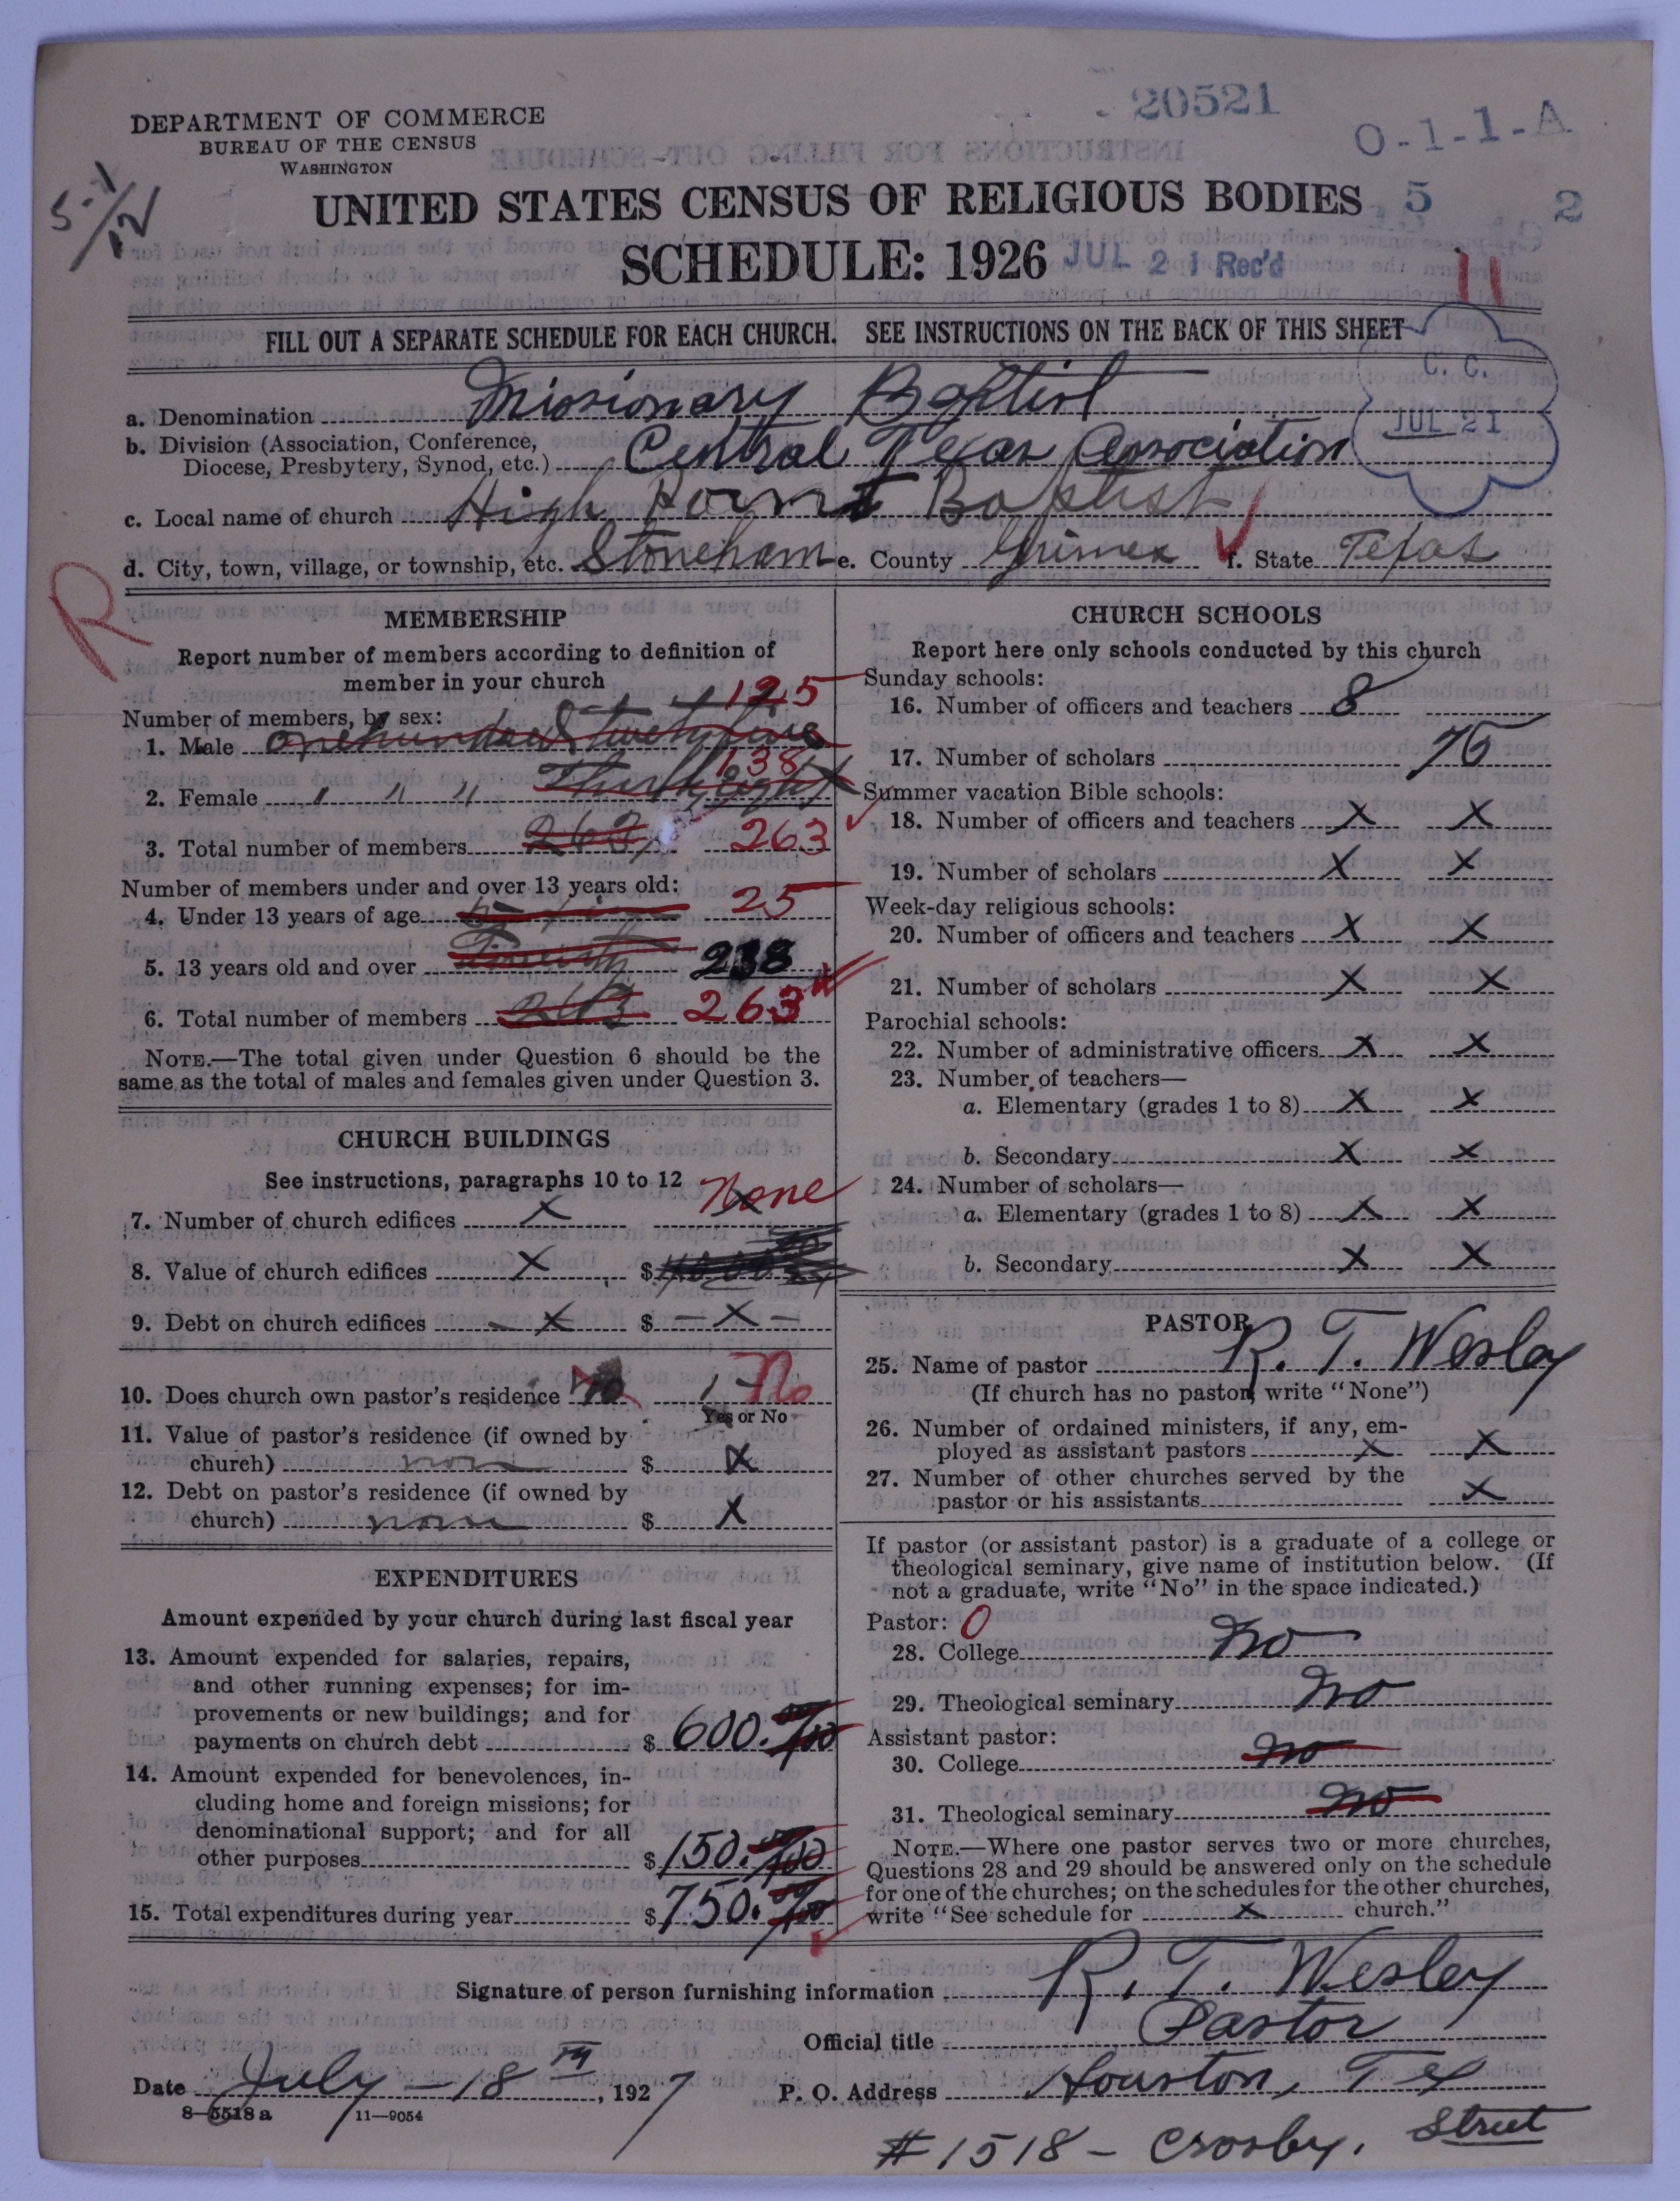 20521
O-1-1-A
DEPARTMENT OF COMMERCE
BUREAU OF THE CENSUS
WASHINGTON
5-1/12
UNITED STATES CENSUS OF RELIGIOUS BODIES
5 2
SCHEDULE: 1926
JUL 21 Rec'd
11
FILL OUT A SEPARATE SCHEDULE FOR EACH CHURCH. SEE INSTRUCTIONS ON THE BACK OF THIS SHEET
C. C.
JUL 21
a. Denomination Missionary Baptist
b. Division (Association, Conference,
Diocese, Presbytery, Synod, etc.) Central Texas Association
c. Local name of church High Point Baptist
d. City, town, village, or township, etc. Stoneham e. County Grimes f. State Texas
R
MEMBERSHIP
Report number of members according to definition of
member in your church
Number of members, by sex:
1. Male one hundred twenty five 125
2. Female " " " Thirty eight 138
3. Total number of members 263 263
Number of members under and over 13 years old:
4. Under 13 years of age 25
5. 13 years old and over 238
6. Total number of members 263 263
NOTE.—The total given under Question 6 should be the
same as the total of males and females given under Question 3.
CHURCH BUILDINGS
See instructions, paragraphs 10 to 12
7. Number of church edifices X X None
8. Value of church edifices X $
9. Debt on church edifices - X $ - X -
10. Does church own pastor's residence no No
Yes or No
11. Value of pastor's residence (if owned by
church) non $ X
12. Debt on pastor's residence (if owned by
church) non $ X
EXPENDITURES
Amount expended by your church during last fiscal year
13. Amount expended for salaries, repairs,
and other running expenses; for im-
provements or new buildings; and for
payments on church debt $ 600.
14. Amount expended for benevolences, in-
cluding home and foreign missions; for
denominational support; and for all
other purposes $ 150.
15. Total expenditures during year $ 750.
CHURCH SCHOOLS
Report here only schools conducted by this church
Sunday schools:
16. Number of officers and teachers 8
17. Number of scholars 75
Summer vacation Bible schools:
18. Number of officers and teachers X X
19. Number of scholars X X
Week-day religious schools:
20. Number of officers and teachers X X
21. Number of scholars X X
Parochial schools:
22. Number of administrative officers X X
23. Number of teachers—
a. Elementary (grades 1 to 8) X X
b. Secondary X X
24. Number of scholars—
a. Elementary (grades 1 to 8) X X
b. Secondary X X
PASTOR
25. Name of pastor R. T. Wesley
(If church has no pastor, write "None")
26. Number of ordained ministers, if any, em-
ployed as assistant pastors X X
27. Number of other churches served by the
pastor or his assistants X
If pastor (or assistant pastor) is a graduate of a college or
theological seminary, give name of institution below. (If
not a graduate, write "No" in the space indicated.)
Pastor: 0
28. College no
29. Theological seminary no
Assistant pastor:
30. College no
31. Theological seminary no
NOTE.—Where one pastor serves two or more churches,
Questions 28 and 29 should be answered only on the schedule
for one of the churches; on the schedules for the other churches,
write "See schedule for X church."
Signature of person furnishing information R. T. Wesley
Official title Pastor
Date July - 18 TH, 1927 P. O. Address Houston, Tex
8-5518 a 11-9054
#1518 - Crosby. Street